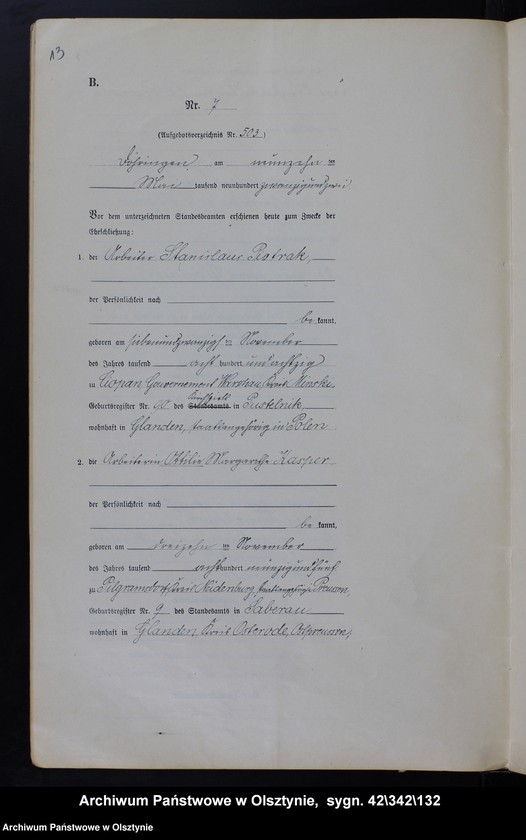 13
B.
Nr. 7
(Aufgebotsverzeichnis Nr. 503)
Döhringen am neunzehn ten
Mai tausend neunhundert zwanzigundzwei
Vor dem unterzeichneten Standesbeamten erschienen heute zum Zwecke der
Eheschließung:
1. der Arbeiter Stanislaus Pietrak,
der Persönlichkeit nach
bekannt,
geboren am siebenundzwanzigsten November
des Jahres tausend acht hundert undachtzig
zu Gouvernement Warschau, Kreis Minsk,
Geburtsregister Nr. des Standesamts in Pustelnik
wohnhaft in Glanden, staatsangehörig in Polen
2. die Arbeiterin Ottilie Margarethe Kasper
der Persönlichkeit nach
bekannt,
geboren am dreizehn ten November
des Jahres tausend achthundert neunzigundfünf
zu Pilgramsdorf, Kreis Neidenburg, Preussen,
Geburtsregister Nr. 9 des Standesamts in Saberau
wohnhaft in Glanden, Kreis Osterode, Ostpreussen,
Archiwum Państwowe w Olsztynie, sygn. 42\342\132
Archiwum Państwowe w Olsztynie